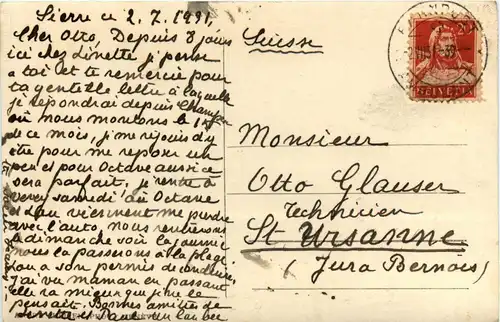 Sierre le 2. 7. 1931.
Cher Otto, Depuis 8 jours
ici chez Linette je pense
a toi et te remercie pour
ta gentille lettre à laquelle
je répondrai depuis
où nous montons le
de ce mois, je me réjouis d'y
être pour me reposer un
peu et pour Octave aussi ce
sera parfait, je rentre à
Vevey samedi, Octave
et viennent me prendre
avec l'auto, nous rentrerons
le dimanche soir la journée
nous la passerons à la plage
on a son permis de conduire,
j'ai vu maman en passant
elle va mieux que je ne le
pensait. Bonnes amitiés de
Linette et Paul un
Suisse
20
HELVETIA
Monsieur
Otto Glauser
Technicien
St Ursanne
(Jura Bernois)